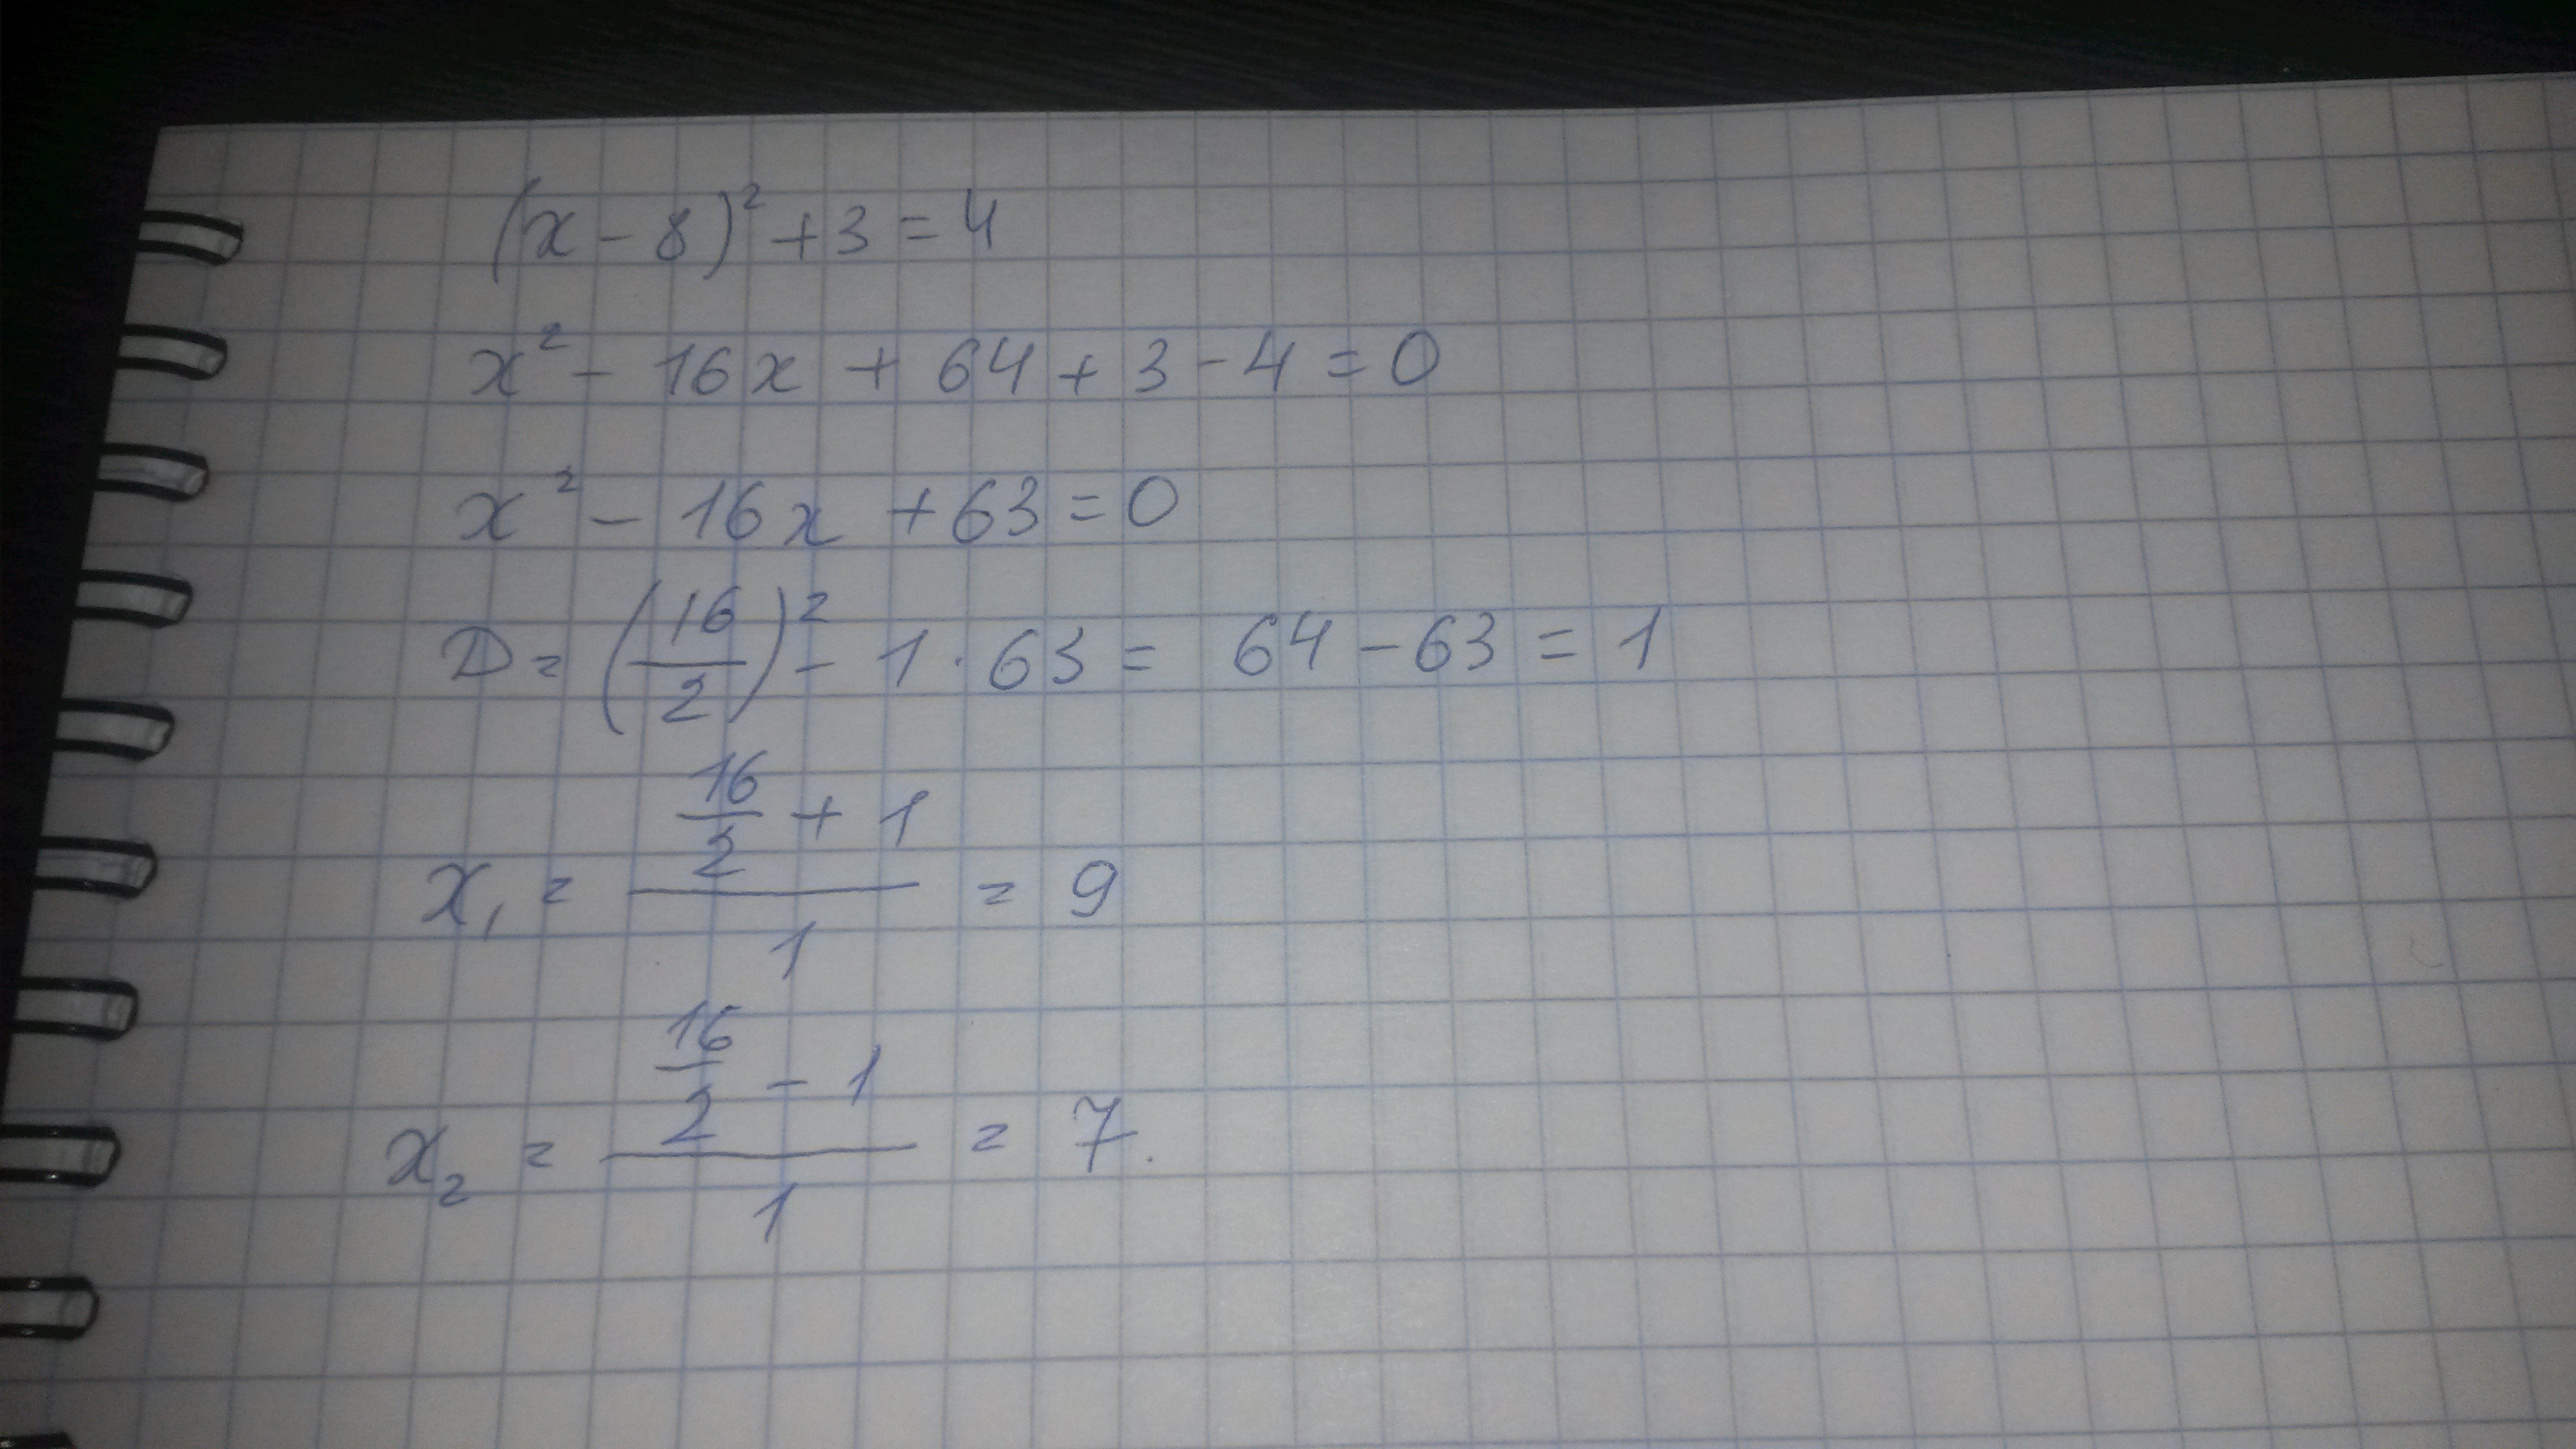 (x - 8)² + 3 = 4
x² - 16x + 64 + 3 - 4 = 0
x² - 16x + 63 = 0
D = (16/2)² - 1 · 63 = 64 - 63 = 1
x₁ = (16/2 + 1)/1 = 9
x₂ = (16/2 - 1)/1 = 7.